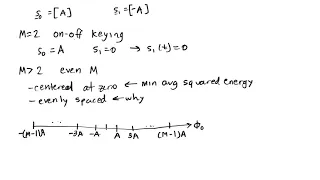 s₀ = [A]   s₁ = [-A]
M=2 on-off keying
s₀ = A   s₁ = 0 → s₁(t) = 0
M>2 even M
-centered at zero ← min avg squared energy
-evenly spaced ← why
... ... ϕ₀
-(M-1)A -3A -A A 3A (M-1)A